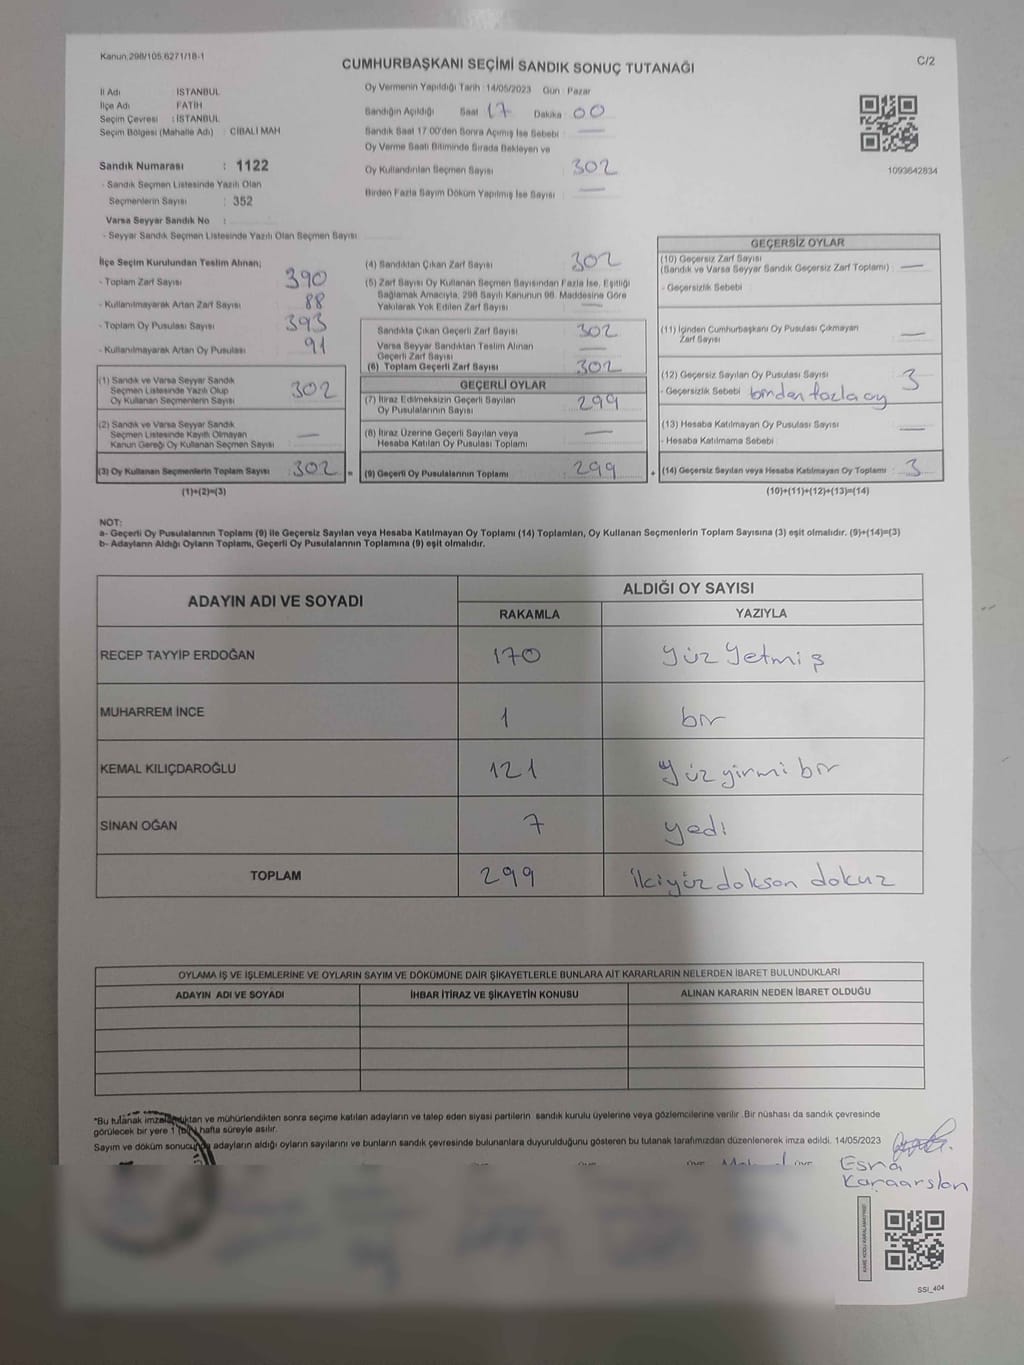 Kanun.298/105,6271/18-1
C/2
CUMHURBAŞKANI SEÇİMİ SANDIK SONUÇ TUTANAĞI
İl Adı : İSTANBUL
İlçe Adı : FATİH
Seçim Çevresi : İSTANBUL
Seçim Bölgesi (Mahalle Adı) : CİBALİ MAH
Sandık Numarası : 1122
- Sandık Seçmen Listesinde Yazılı Olan
Seçmenlerin Sayısı : 352
Varsa Seyyar Sandık No :
- Seyyar Sandık Seçmen Listesinde Yazılı Olan Seçmen Sayısı
Oy Vermenin Yapıldığı Tarih :14/05/2023 Gün : Pazar
Sandığın Açıldığı Saat 17 Dakika 00
Sandık Saat 17:00'den Sonra Açılmış İse Sebebi : —
Oy Verme Saati Bitiminde Sırada Bekleyen ve
Oy Kullandırılan Seçmen Sayısı : 302
Birden Fazla Sayım Döküm Yapılmış İse Sayısı : —
1093642834
İlçe Seçim Kurulundan Teslim Alınan;
- Toplam Zarf Sayısı 390
- Kullanılmayarak Artan Zarf Sayısı 88
- Toplam Oy Pusulası Sayısı 393
- Kullanılmayarak Artan Oy Pusulası 91
(1) Sandık ve Varsa Seyyar Sandık
Seçmen Listesinde Yazılı Olup
Oy Kullanan Seçmenlerin Sayısı 302
(2) Sandık ve Varsa Seyyar Sandık
Seçmen Listesinde Kayıtlı Olmayan
Kanun Gereği Oy Kullanan Seçmen Sayısı —
(3) Oy Kullanan Seçmenlerin Toplam Sayısı : 302 =
(1)+(2)=(3)
(4) Sandıktan Çıkan Zarf Sayısı 302
(5) Zarf Sayısı Oy Kullanan Seçmen Sayısından Fazla İse, Eşitliği
Sağlamak Amacıyla, 298 Sayılı Kanunun 98. Maddesine Göre
Yakılarak Yok Edilen Zarf Sayısı —
Sandıkta Çıkan Geçerli Zarf Sayısı 302
Varsa Seyyar Sandıktan Teslim Alınan
Geçerli Zarf Sayısı —
(6) Toplam Geçerli Zarf Sayısı 302
GEÇERLİ OYLAR
(7) İtiraz Edilmeksizin Geçerli Sayılan
Oy Pusulalarının Sayısı 299
(8) İtiraz Üzerine Geçerli Sayılan veya
Hesaba Katılan Oy Pusulası Toplamı —
(9) Geçerli Oy Pusulalarının Toplamı 299 +
GEÇERSİZ OYLAR
(10) Geçersiz Zarf Sayısı
(Sandık ve Varsa Seyyar Sandık Geçersiz Zarf Toplamı) : —
- Geçersizlik Sebebi
(11) İçinden Cumhurbaşkanı Oy Pusulası Çıkmayan
Zarf Sayısı —
(12) Geçersiz Sayılan Oy Pusulası Sayısı : 3
- Geçersizlik Sebebi birden fazla oy
(13) Hesaba Katılmayan Oy Pusulası Sayısı : —
- Hesaba Katılmama Sebebi
(14) Geçersiz Sayılan veya Hesaba Katılmayan Oy Toplamı : 3
(10)+(11)+(12)+(13)=(14)
NOT:
a- Geçerli Oy Pusulalarının Toplamı (9) ile Geçersiz Sayılan veya Hesaba Katılmayan Oy Toplamı (14) Toplamları, Oy Kullanan Seçmenlerin Toplam Sayısına (3) eşit olmalıdır. (9)+(14)=(3)
b- Adayların Aldığı Oyların Toplamı, Geçerli Oy Pusulalarının Toplamına (9) eşit olmalıdır.
ADAYIN ADI VE SOYADI
ALDIĞI OY SAYISI
RAKAMLA YAZIYLA
RECEP TAYYİP ERDOĞAN 170 yüz yetmiş
MUHARREM İNCE 1 bir
KEMAL KILIÇDAROĞLU 121 yüz yirmi bir
SİNAN OĞAN 7 yedi
TOPLAM 299 ikiyüz doksan dokuz
OYLAMA İŞ VE İŞLEMLERİNE VE OYLARIN SAYIM VE DÖKÜMÜNE DAİR ŞİKAYETLERLE BUNLARA AİT KARARLARIN NELERDEN İBARET BULUNDUKLARI
ADAYIN ADI VE SOYADI İHBAR İTİRAZ VE ŞİKAYETİN KONUSU ALINAN KARARIN NEDEN İBARET OLDUĞU
*Bu tutanak imzalandıktan ve mühürlendikten sonra seçime katılan adayların ve talep eden siyasi partilerin sandık kurulu üyelerine veya gözlemcilerine verilir .Bir nüshası da sandık çevresinde
görülecek bir yere 1 (bir) hafta süreyle asılır.
Sayım ve döküm sonucunda adayların aldığı oyların sayılarını ve bunların sandık çevresinde bulunanlara duyurulduğunu gösteren bu tutanak tarafımızdan düzenlenerek imza edildi. 14/05/2023
Esna
Karaarslan
KARE KODU KARALAMAYINIZ!
SSI_404